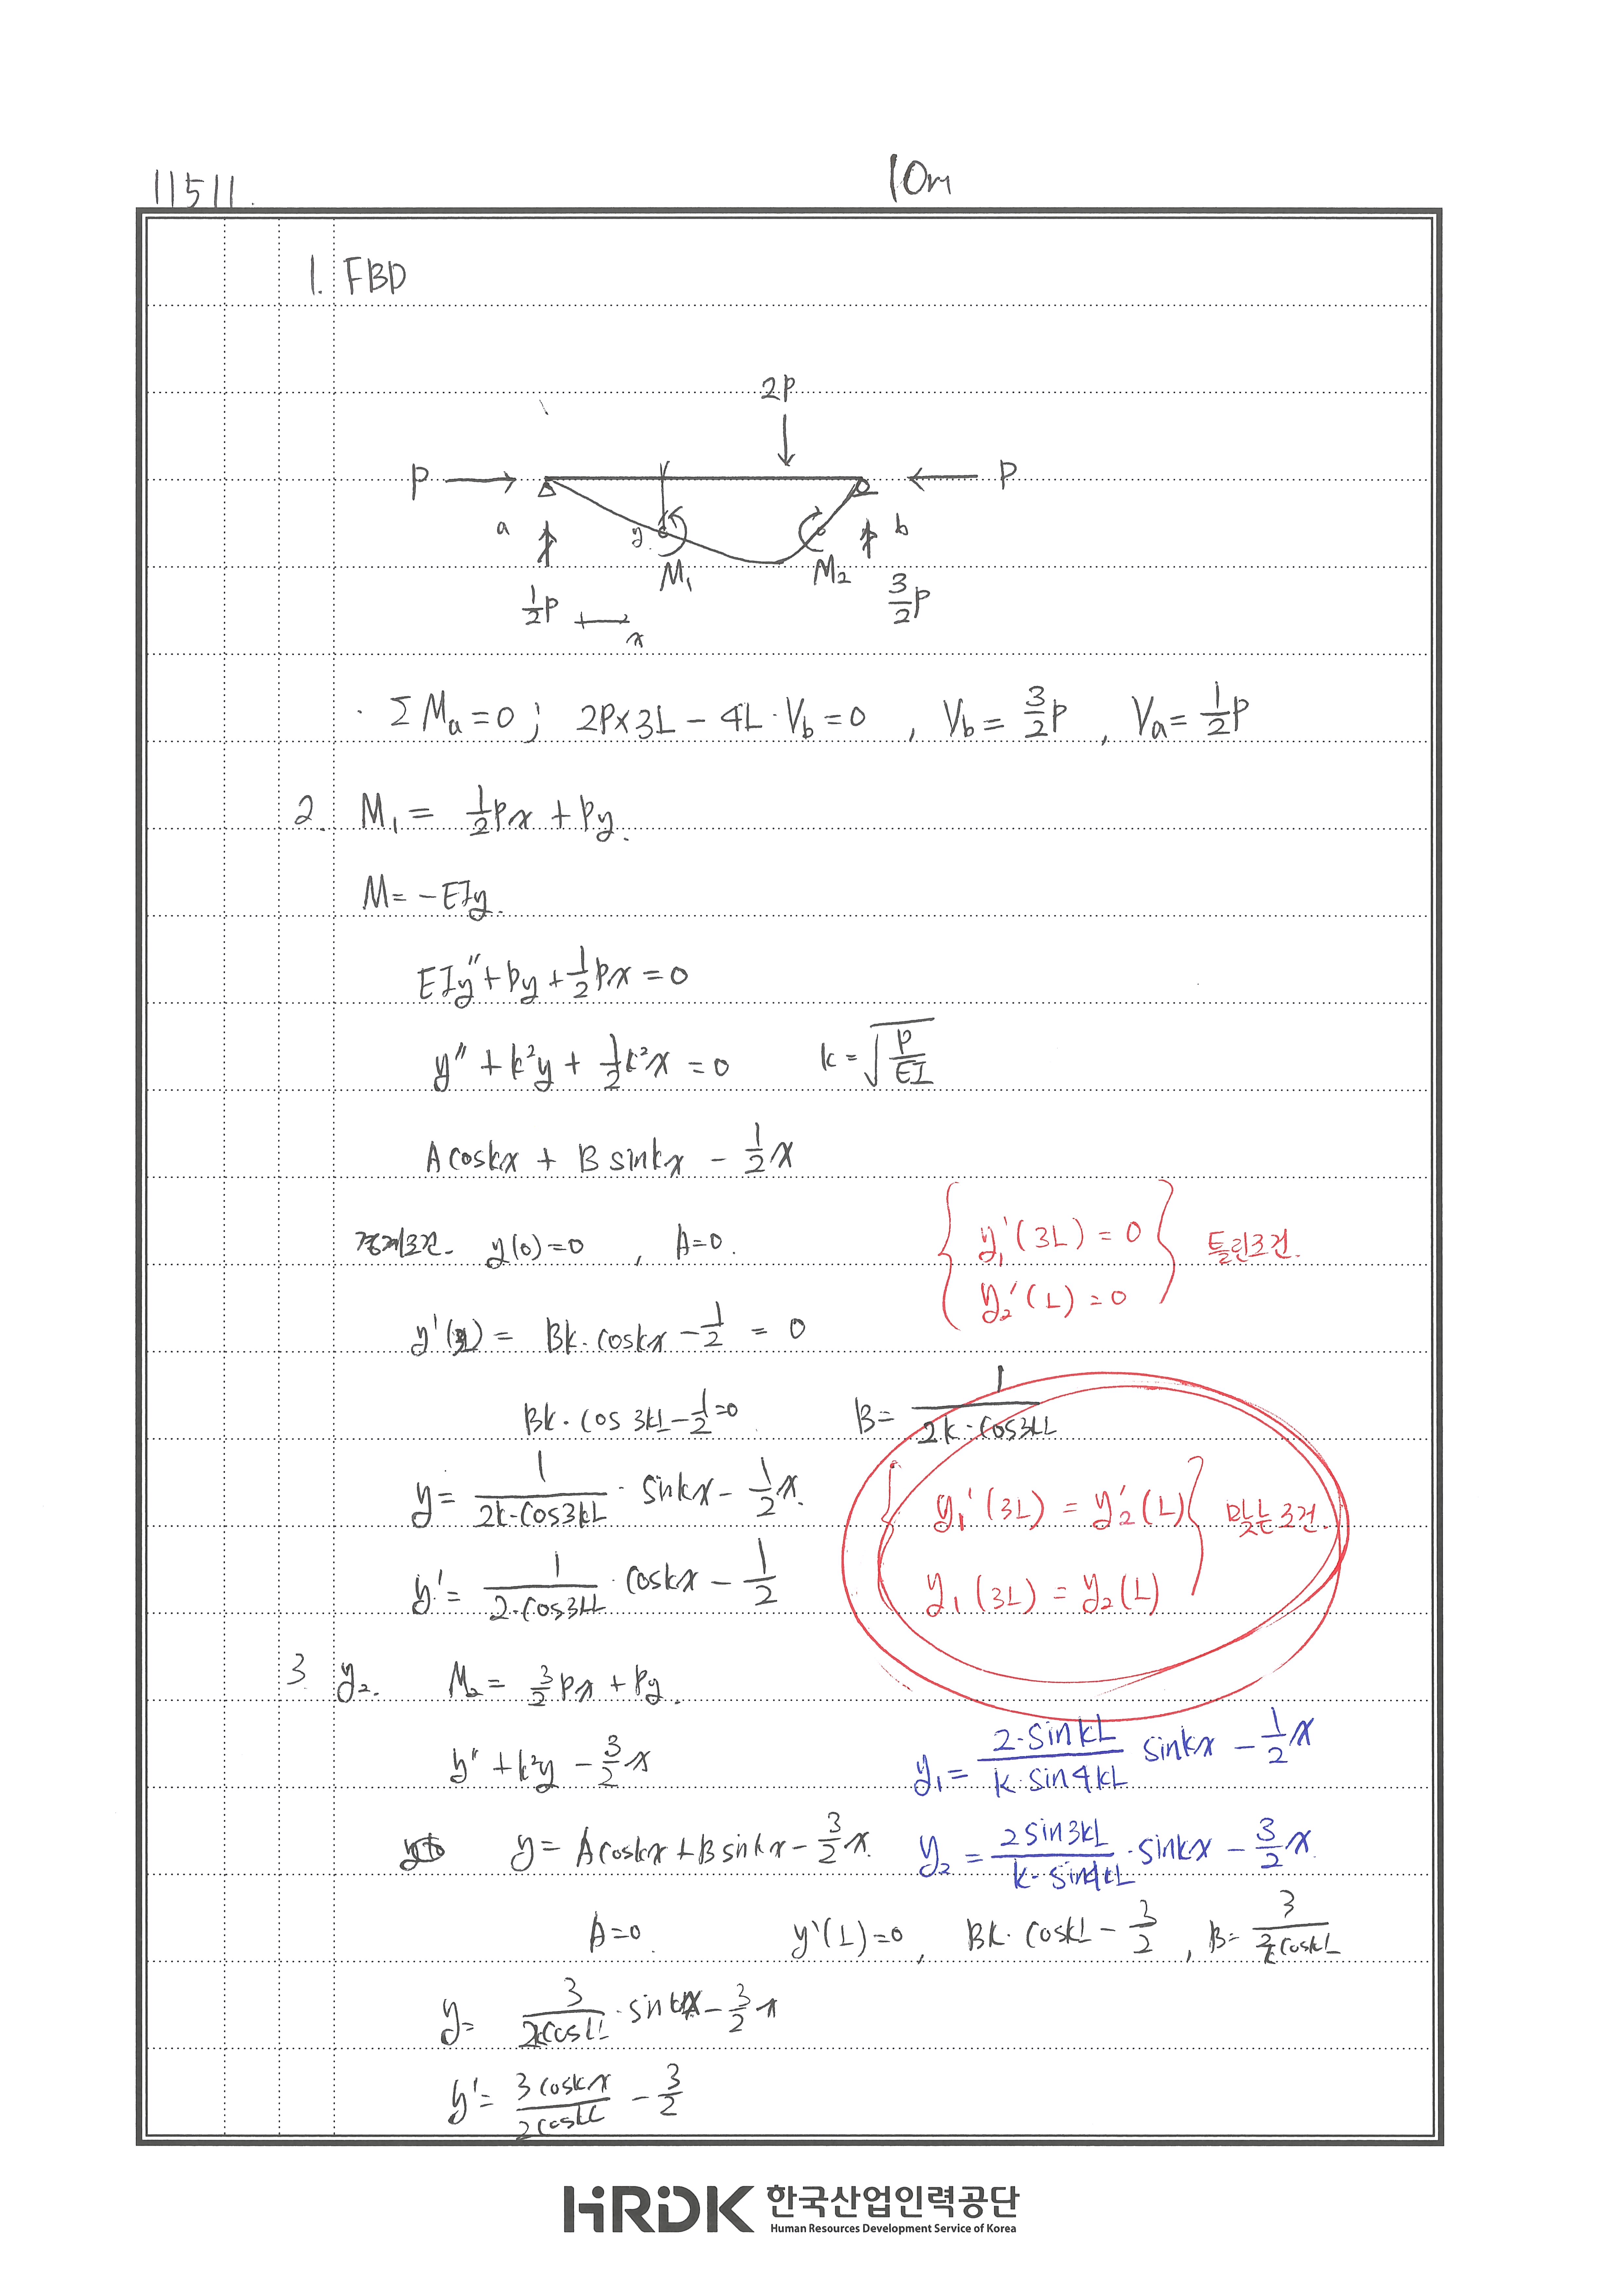 11511.
10m
1. FBD
2P
P
P
a
y
M₁
M₂
b
½P
x
3/2 P
· ΣMa=0 ; 2P×3L - 4L·Vb=0 , Vb= 3/2 P , Va= 1/2 P
2. M₁= ½Px + Py.
M= -EIy.
EIy″+Py+½Px=0
y″+k²y+½k²x=0 k=√(P/EI)
Acoskx + Bsinkx - ½x
경계조건. y(0)=0 , A=0.
{ y₁′(3L)=0
y₂′(L)=0 } 틀린조건.
y′(3L)= Bk·coskx - ½ = 0
Bk·cos3kL-½=0 B= 1/(2k·cos3kL)
y= 1/(2k·cos3kL) · sinkx - ½x.
{ y₁′(3L)=y₂′(L)
y₁(3L)=y₂(L) } 맞는조건.
y′= 1/(2·cos3kL) · coskx - ½
3. y₂. M₂= 3/2 Px + Py.
y″+k²y - 3/2 x
y₁= (2·sinkL)/(k·sin4kL) sinkx - ½x
y= Acoskx+Bsinkx - 3/2 x.
y₂= (2sin3kL)/(k·sin4kL) · sinkx - 3/2 x.
A=0. y′(L)=0 , Bk·coskL - 3/2 , B= 3/(2k coskL)
y= 3/(2kcoskL) · sinkx - 3/2 x
y′= (3coskx)/(2coskL) - 3/2
HRDK 한국산업인력공단
Human Resources Development Service of Korea